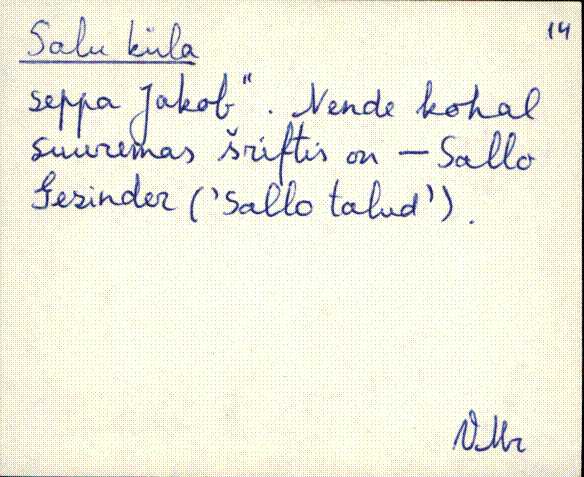 14
Salu küla
seppa Jakob". Nende kohal
suuremas šriftis on — Sallo
Gesinder ('Sallo talud').